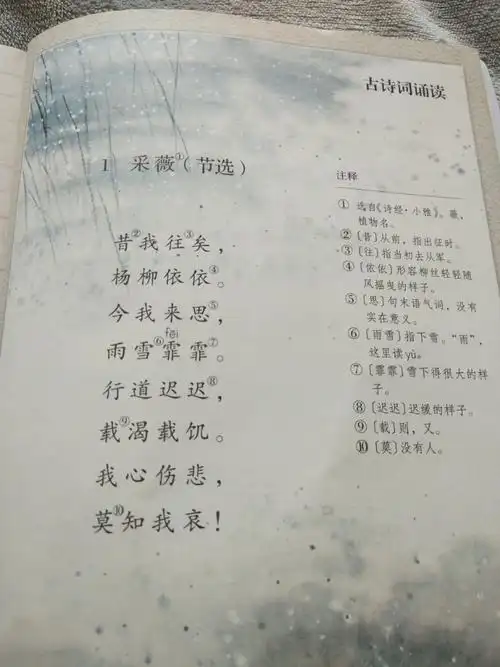 古诗词诵读
1 采薇①（节选）
昔②我往③矣，
杨柳依依④。
今我来思⑤，
fēi
雨雪⑥霏霏⑦。
行道迟迟⑧，
载⑨渴载饥。
我心伤悲，
莫⑩知我哀！
注释
① 选自《诗经·小雅》。薇，
植物名。
② 〔昔〕从前，指出征时。
③ 〔往〕指当初去从军。
④ 〔依依〕形容柳丝轻轻随
风摇曳的样子。
⑤ 〔思〕句末语气词，没有
实在意义。
⑥ 〔雨雪〕指下雪。“雨”，
这里读yù。
⑦ 〔霏霏〕雪下得很大的样
子。
⑧ 〔迟迟〕迟缓的样子。
⑨ 〔载〕则，又。
⑩ 〔莫〕没有人。